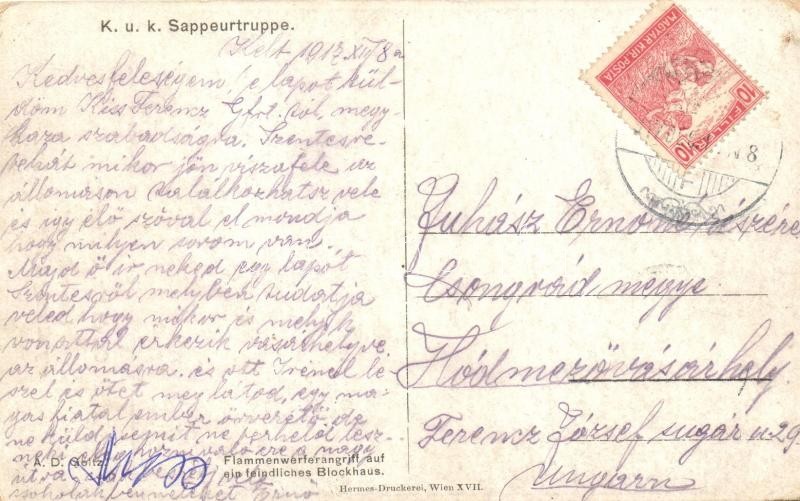 K. u. k. Sappeurtruppe.
Kelt 1917 XII/8 án
Kedves feleségem! e lapot kül-
döm Kiss Ferencz Gfrt. tól, megy
haza szabadságra. Szentesre
tehát mikor jön viszafele az
állomáson találkozhatsz vele
és igy élő szóval el mondja
hogy milyen sorom van.
Majd ő ir neked egy lapot
Szentesről melyben tudatja
veled hogy mikor is melyik
vonattal érkezik Vásárhelyre
az állomásra. és ott
szel is őtet meg látod, egy ma-
gas fiatal ember őrvezető de
ne küld semit ne terheld
A. D. Goltz
Flammenwerferangriff auf
ein feindliches Blockhaus.
Hermes-Druckerei, Wien XVII.
MAGYAR KIR. POSTA
10 FILLÉR 10
Juhász Ernőné részére
Csongrád megye
Hódmezővásárhely.
Ferencz József sugár u 29
Ungarn